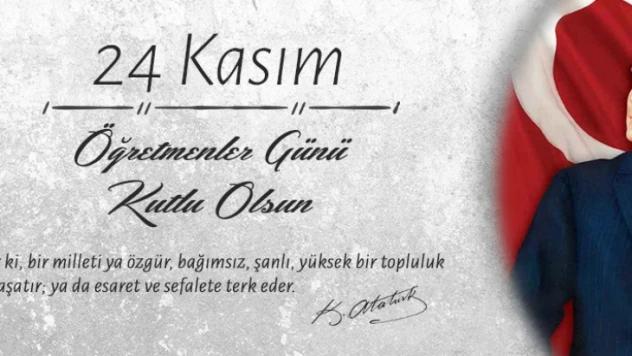 24 Kasım
Öğretmenler Günü
Kutlu Olsun
ki, bir milleti ya özgür, bağımsız, şanlı, yüksek bir topluluk
ya da esaret ve sefalete terk eder.
K. Atatürk